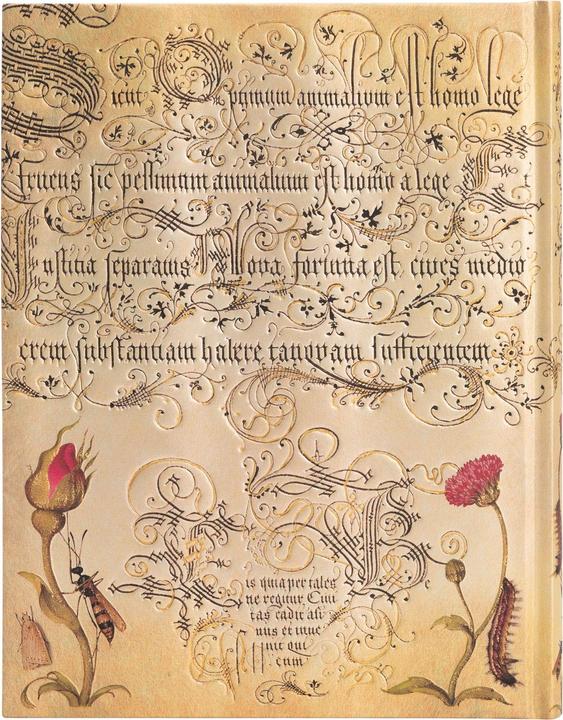 Sicut Optimum animalium est homo lege
fruens sic pessimum animalium est homo a lege Et
Iustitia separatus Nova fortuna est, cives medio
crem substantiam habere tanquam sufficientem
is quia per tales Be
ne regitur Civi
tas cadit asi
nus et inve
nit qui
eum